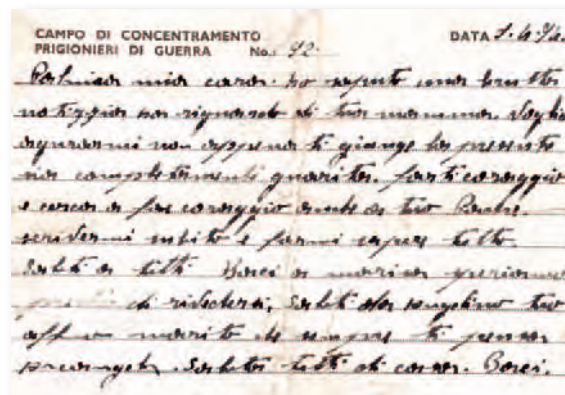 CAMPO DI CONCENTRAMENTO
PRIGIONIERI DI GUERRA No. 92. DATA
mia cara. ho saputo una brutta
notizzia riguardo di tua mamma. Voglio
agurarmi non appena ti giunge la presente
sia completamente guarita. fatti coraggio
e cerca a far coraggio anche a tuo Padre.
scrivermi subito e farmi sapere tutto.
Saluti a tutti Baci a
di rivederci, Saluti da tuo
aff.mo marito che sempre ti pensa
Saluta tutti di casa. Baci.